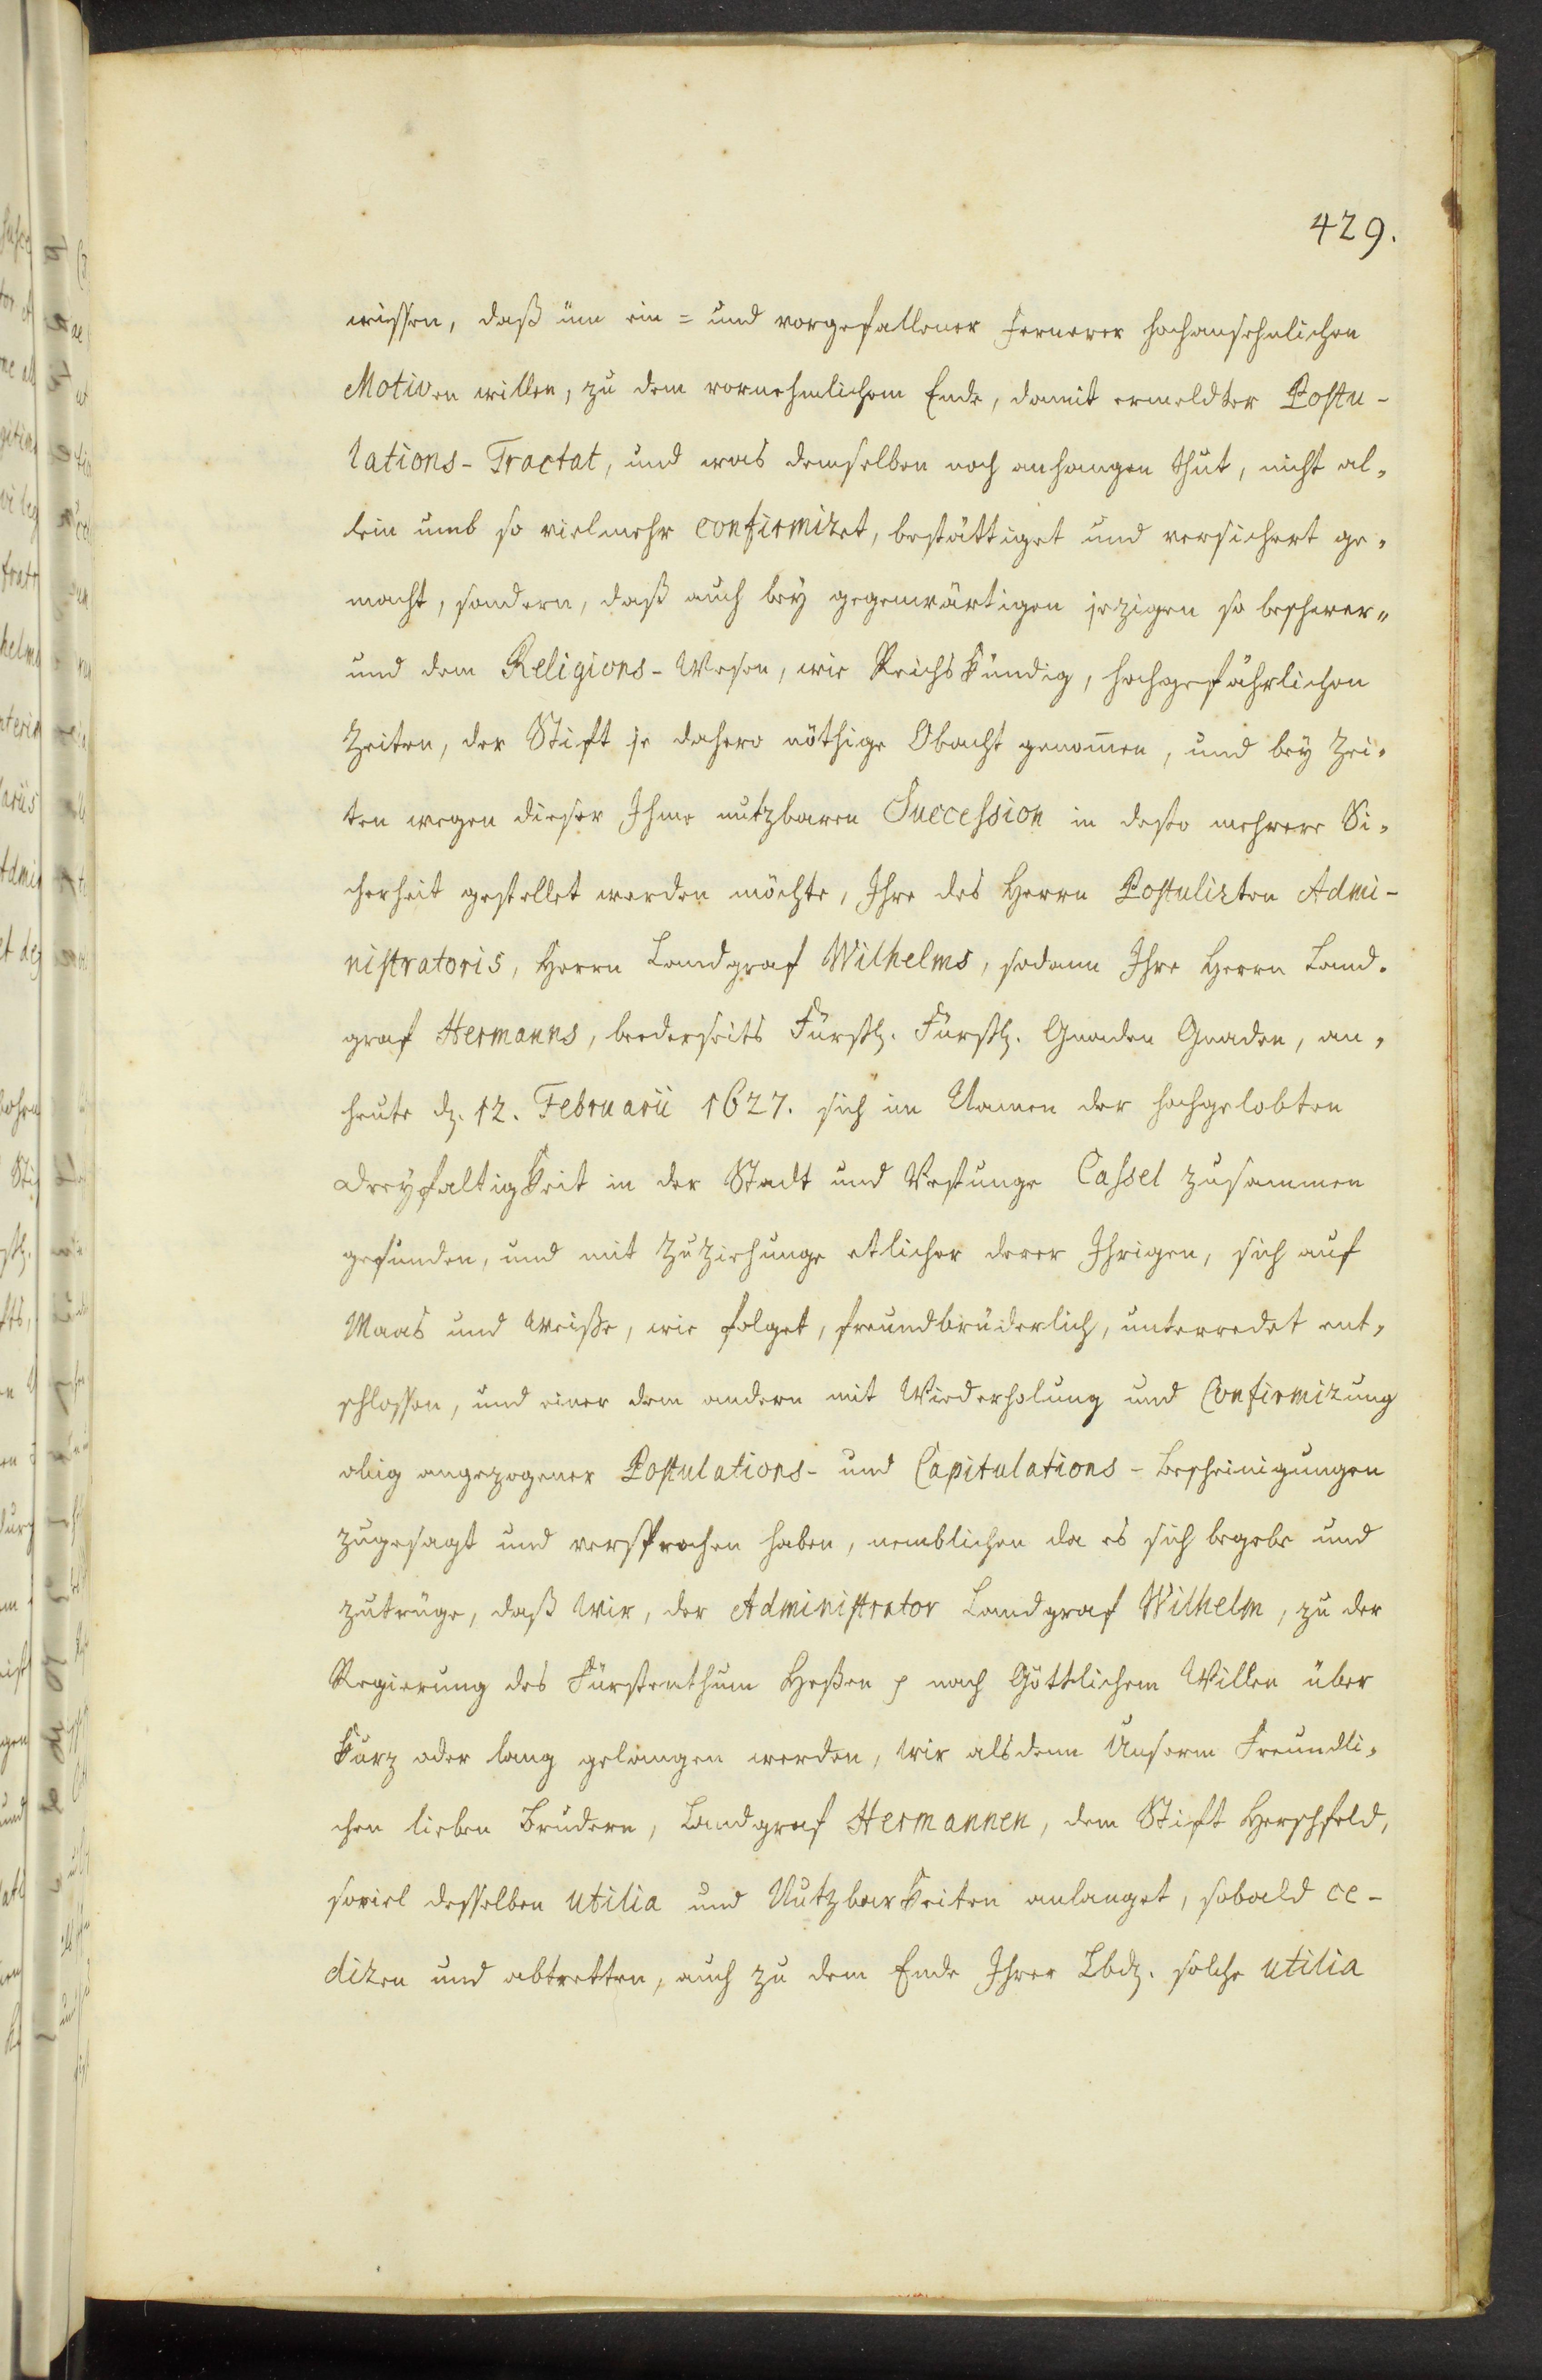 429.
wissen, daß üm ein = und vorgefallener fernerer hochansehnlichen
Motiven willen, zu dem vornehmlichem Ende, damit ermeldter Postu-
lations-Tractat, und was demselben noch anhangen thut, nicht al-
lein umb so vielmehr confirmiret, bestättiget und versichert ge-
macht, sondern, daß auch bey gegenwärtigen jezigen so beschwer-
und dem Religions-Wesen, wie Reichs kündig, hochgefährlichen
Zeiten, der Stift je dahero nöthige Obacht genom̄en, und bey Zei-
ten wegen dieser Ihme nutzbaren Succession in desto mehrere Si-
cherheit gestellet werden möchte, Ihre des Herrn Postulirten Admi-
nistratoris, Herrn Landgraf Wilhelms, sodann Ihre Herrn Land-
graf Hermanns, beederseits Fürstl. Fürstl. Gnaden Gnaden, an-
heute d. 12. Februarii 1627. sich im Namen der hochgelobten
Dreyfaltigkeit in der Stadt und Vestunge Cassel zusammen
gefunden, und mit Zuziehunge etlicher derer Ihrigen, sich auf
Maas und Weiße, wie folget, freundbrüderlich, unterredet ent-
schlossen, und einer dem andern mit Wiederholung und Confirmirung
obig angezogener Postulations- und Capitulations-Bescheinigungen
zugesagt und versprochen haben, nemblichen da es sich begebe und
zutrüge, daß Wir, der Administrator Landgraf Wilhelm, zu der
Regierung des Fürstenthum Heßen p nach Göttlichem Willen über
kurz oder lang gelangen werden, Wir alsdenn Unserm Freundli-
chen lieben Brudern, Landgraf Hermannen, dem Stift Herschfeld,
soviel desselben utilia und Nutzbarkeiten anlanget, sobald ce-
diren und abtretten, auch zu dem Ende Ihrer Lbd. solche utilia